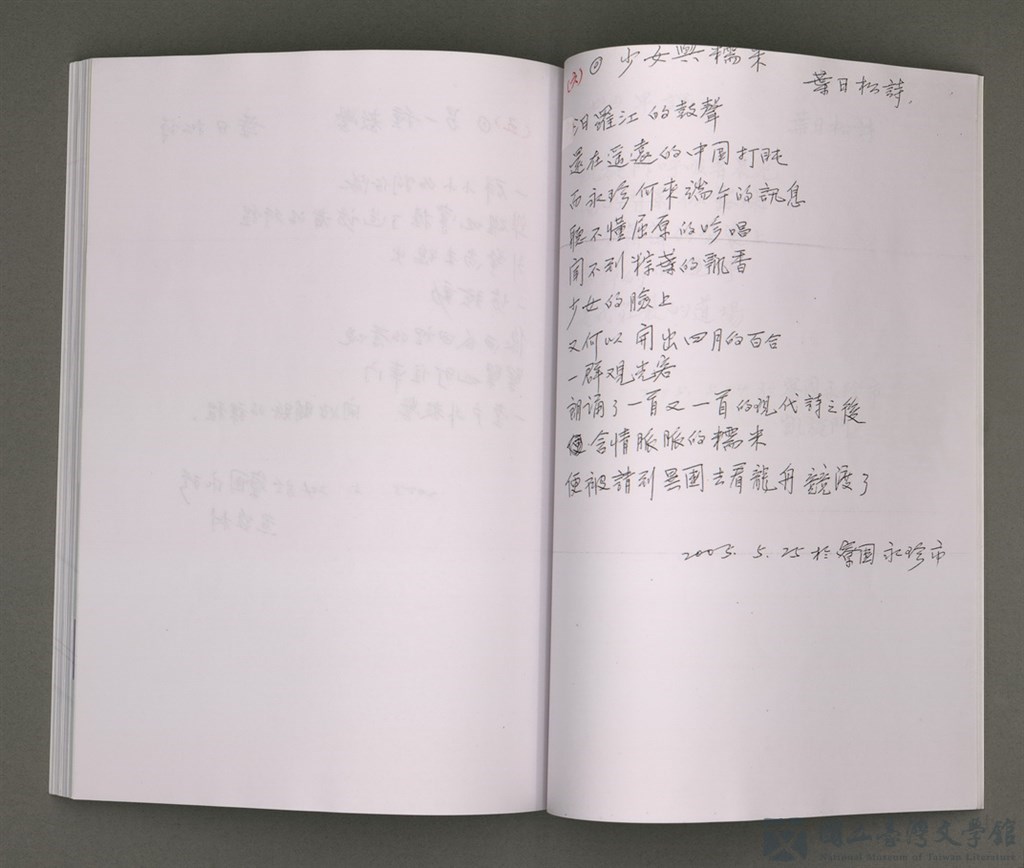 (六) ◎ 少女與糯米
葉日松詩.
汨羅江的鼓聲
還在遙遠的中国打盹
而永珍何來端午的訊息
聽不懂屈原的吟唱
聞不到粽葉的飄香
少女的臉上
又何以開出四月的百合
一群观光客
朗誦了一首又一首的现代詩之後
含情脈脈的糯米
便被請到異国去看龍舟競渡了
2005. 5. 25 於寮国永珍市
國立臺灣文學館
National Museum of Taiwan Literature